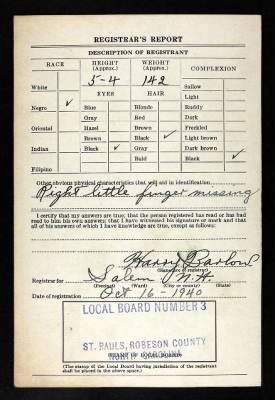 REGISTRAR'S REPORT
DESCRIPTION OF REGISTRANT
RACE
HEIGHT (Approx.)
WEIGHT (Approx.)
COMPLEXION
5-4
142
White
Sallow
EYES
HAIR
Light
Negro ✓
Blue
Blonde
Ruddy
Gray
Red
Dark
Oriental
Hazel
Brown
Freckled
Brown
Black ✓
Light brown ✓
Indian
Black ✓
Gray
Dark brown
Bald
Black
Filipino
Other obvious physical characteristics that will aid in identification
Right little finger missing
I certify that my answers are true; that the person registered has read or has had
read to him his own answers; that I have witnessed his signature or mark and that
all of his answers of which I have knowledge are true, except as follows:
Harry Barlow
(Signature of registrar)
Registrar for Salem
(Precinct) (Ward) (City or county) (State)
Date of registration Oct 16 - 1940
LOCAL BOARD NUMBER 3
ST. PAULS, ROBESON COUNTY
NORTH CAROLINA
(STAMP OF LOCAL BOARD)
(The stamp of the Local Board having jurisdiction of the registrant
shall be placed in the above space.)